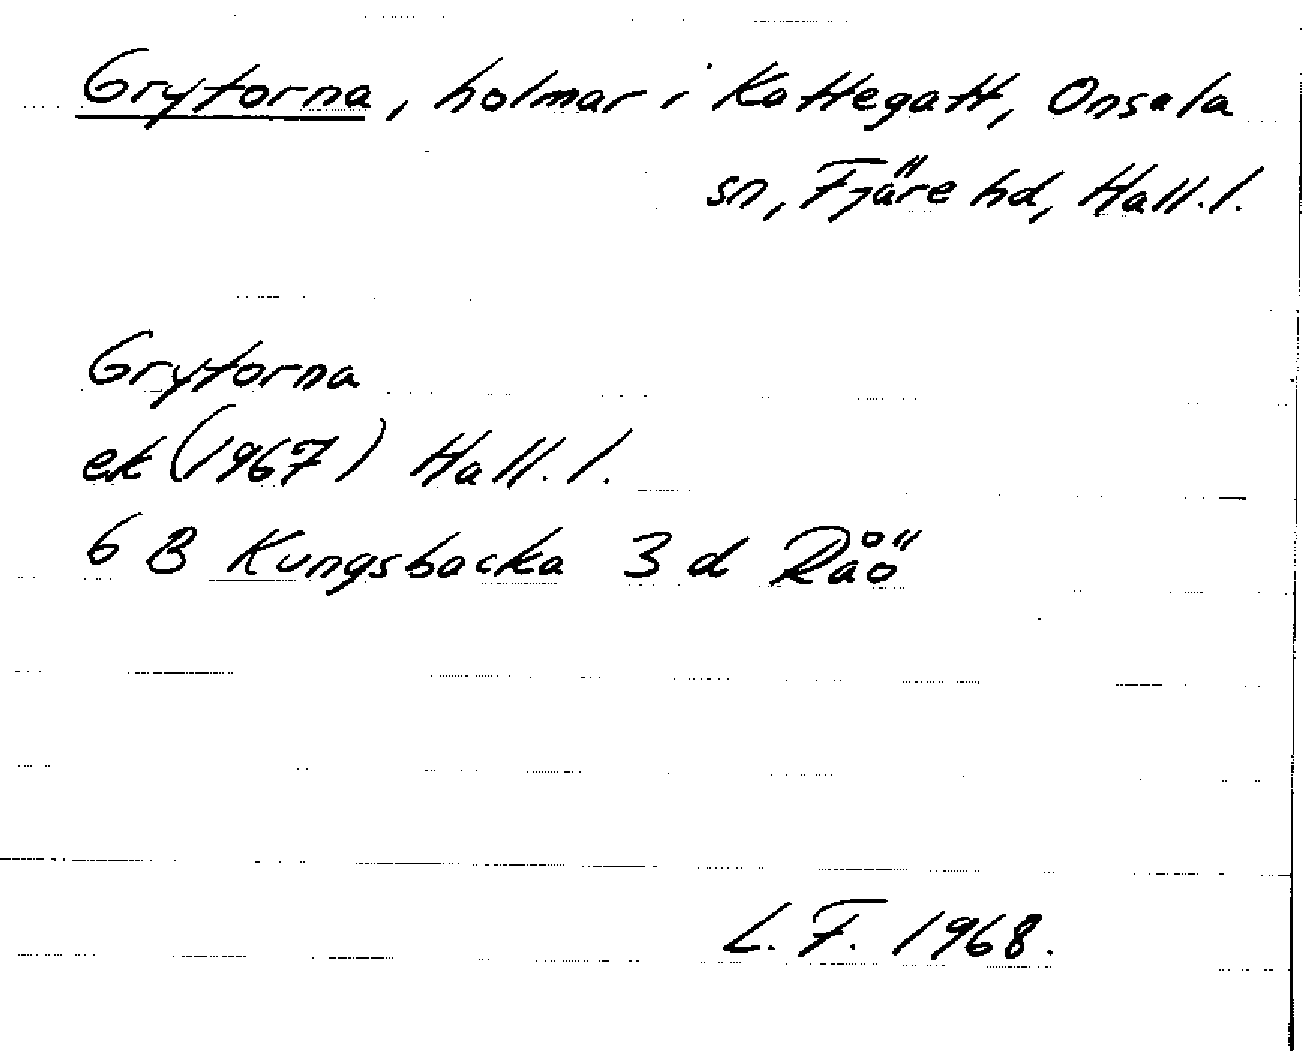 Grytorna, holmar i Kattegatt, Onsala
sn, Fjäre hd, Hall.l.
Grytorna
ek (1967) Hall.l.
6 B Kungsbacka 3 d Råö
L.F. 1968.